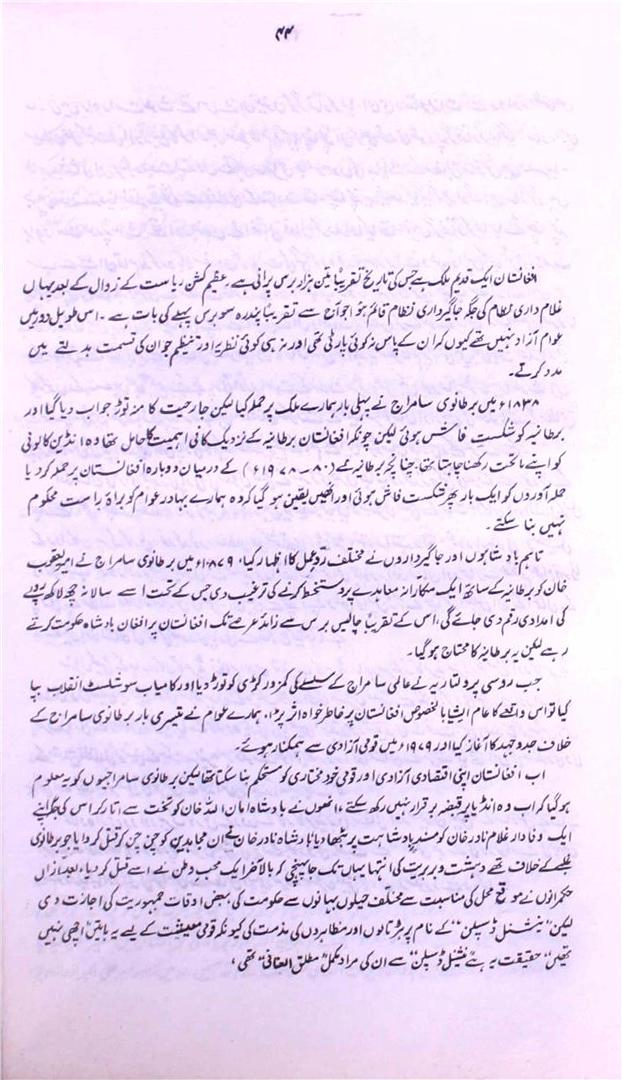 ۴۴
افغانستان ایک قدیم ملک ہے جس کی تاریخ تقریباً تین ہزار برس پرانی ہے، عظیم کشن ریاست کے زوال کے بعد یہاں
غلام داری نظام کی جگہ جاگیرداری نظام قائم ہوا جو آج سے تقریباً پندرہ سو برس پہلے کی بات ہے۔ اس طویل دور میں
عوام آزاد نہیں تھے کیوں کہ ان کے پاس نہ کوئی پارٹی تھی اور نہ ہی کوئی نظریہ اور تنظیم جو ان کی قسمت بدلنے میں
مدد کرتے۔
۱۸۳۸ء میں برطانوی سامراج نے پہلی بار ہمارے ملک پر حملہ کیا لیکن جارحیت کا منہ توڑ جواب دیا گیا اور
برطانیہ کو شکست فاش ہوئی لیکن چونکہ افغانستان برطانیہ کے نزدیک کافی اہمیت کا حامل تھا وہ انڈین کالونی
کو اپنے ماتحت رکھنا چاہتا تھا، چنانچہ برطانیہ نے (۸۰-۱۹۷۸ء) کے درمیان دوبارہ افغانستان پر حملہ کر دیا
حملہ آوروں کو ایک بار پھر شکست فاش ہوئی اور انھیں یقین ہو گیا کہ وہ ہمارے بہادر عوام کو براہ راست محکوم
نہیں بنا سکتے۔
تاہم بادشاہوں اور جاگیرداروں نے مختلف ردِّ عمل کا اظہار کیا، ۱۸۷۹ء میں برطانوی سامراج نے امیر یعقوب
خان کو برطانیہ کے ساتھ ایک مکارانہ معاہدے پر دستخط کرنے کی ترغیب دی جس کے تحت اسے سالانہ چھ لاکھ روپے
کی امدادی رقم دی جائے گی، اس کے تقریباً چالیس برس سے زائد عرصے تک افغانستان پر افغان بادشاہ حکومت کرتے
رہے لیکن یہ برطانیہ کا محتاج ہو گیا۔
جب روسی پرولتاریہ نے عالمی سامراج کے سلسلے کی کمزور کڑی کو توڑ دیا اور کامیاب سوشلسٹ انقلاب بپا
کیا تو اس واقعے کا عام ایشیا بالخصوص افغانستان پر خاطر خواہ اثر پڑا، ہمارے عوام نے تیسری بار برطانوی سامراج کے
خلاف جدوجہد کا آغاز کیا اور ۱۹۶۹ء میں قومی آزادی سے ہمکنار ہوئے۔
اب افغانستان اپنی اقتصادی آزادی اور قومی خود مختاری کو مستحکم بنا سکتا تھا لیکن برطانوی سامراجیوں کو یہ معلوم
ہو گیا کہ اب وہ انڈیا پر قبضہ برقرار نہیں رکھ سکتے، انھوں نے بادشاہ امان اللہ خان کو تخت سے اتار کر اس کی جگہ اپنے
ایک وفادار غلام نادر خان کو مسندِ پادشاہت پر بٹھا دیا، بادشاہ نادر خان نے ان مجاہدین کو چن چن کر قتل کروایا جو برطانوی
غلبے کے خلاف تھے دہشت و بربریت کی انتہا یہاں تک جا پہنچی کہ بالآخر ایک محب وطن نے اسے قتل کر دیا، بعد ازاں
حکمرانوں نے موقع محل کی مناسبت سے مختلف حیلوں بہانوں سے حکومت کی، بعض اوقات جمہوریت کی اجازت دی
لیکن ”نیشنل ڈسپلن“ کے نام پر ہڑتالوں اور مظاہروں کی مذمت کی کیونکہ قومی معیشت کے لیے یہ باتیں اچھی نہیں
تھیں“ حقیقت یہ ہے ”نیشنل ڈسپلن“ سے ان کی مراد مکمل ”مطلق العنانی“ تھی،